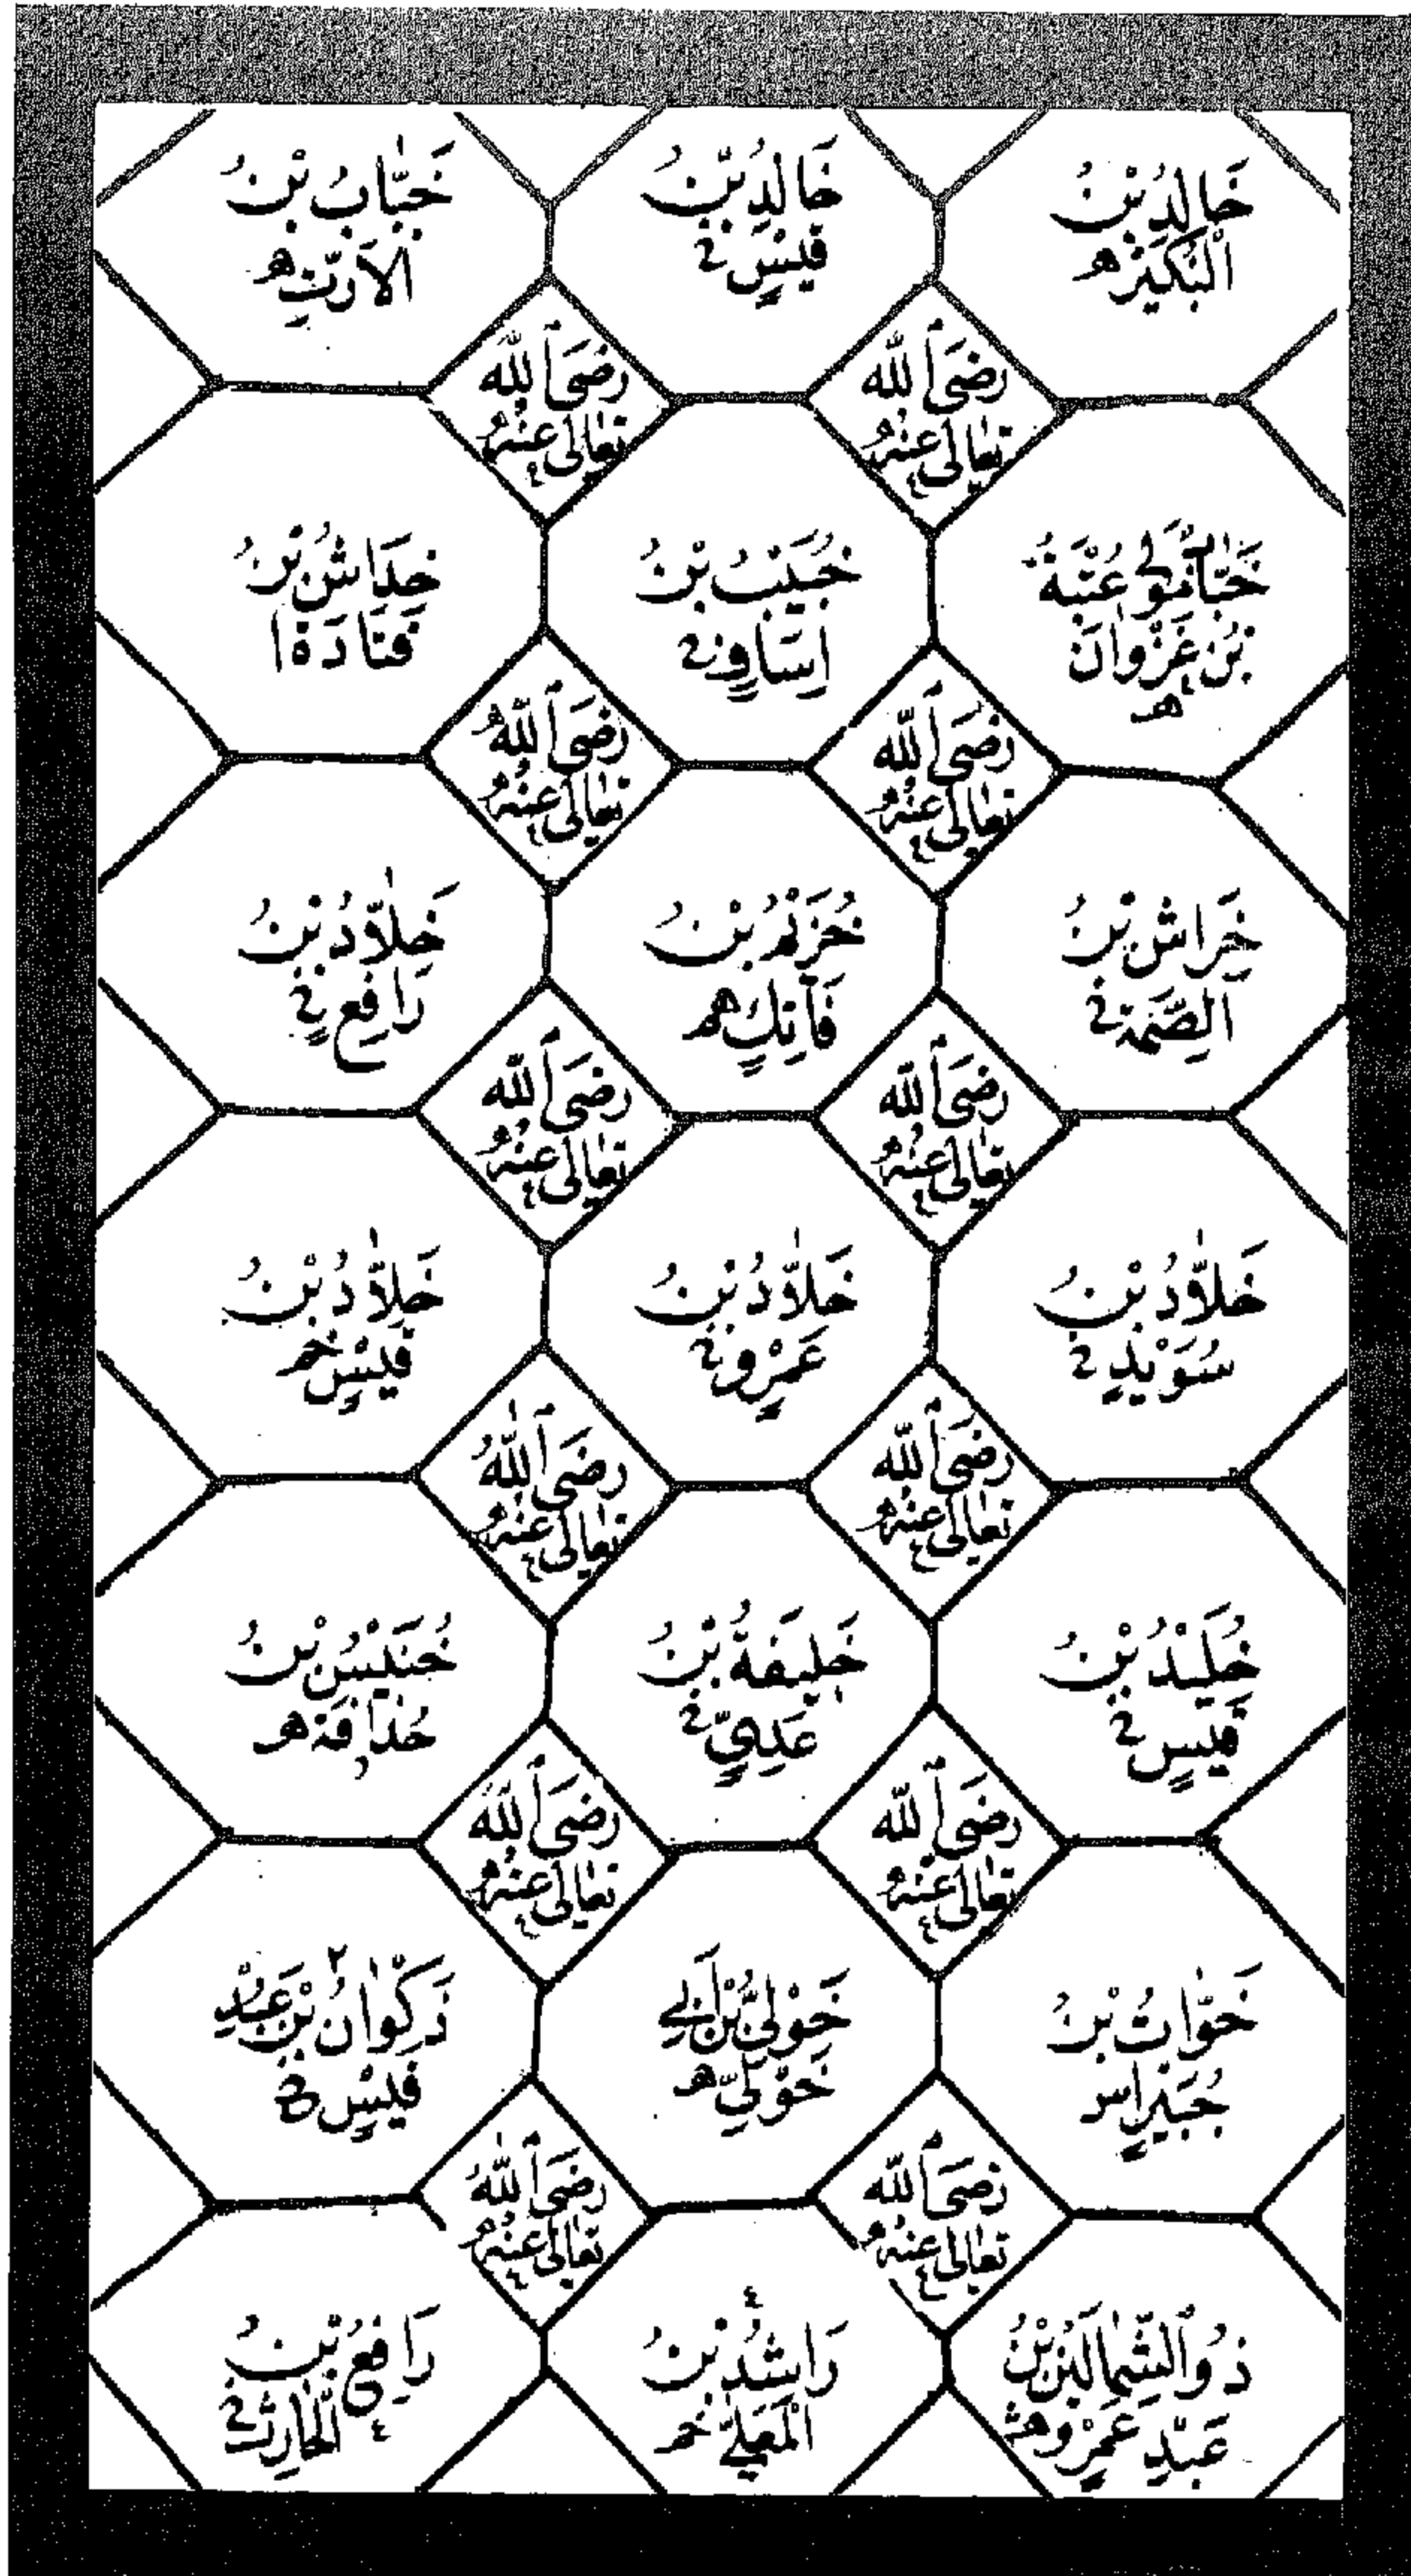 خَالِدُ بْنُ
الْبُكَيْرِ هـ
خَالِدُ بْنُ
قَيْسٍ
خَبَّابُ بْنُ
الْاَرَتِّ هـ
رَضِيَ اللّٰه
تَعَالٰى عَنْهُ
رَضِيَ اللّٰه
تَعَالٰى عَنْهُ
خَبَّابُ مَوْلٰى عُتْبَةَ
بْنِ غَزْوَانَ
هـ
خُبَيْبُ بْنُ
اِسَافٍ
خِدَاشُ بْنُ
قَتَادَةَ ا
رَضِيَ اللّٰه
تَعَالٰى عَنْهُ
رَضِيَ اللّٰهُ
تَعَالٰى عَنْهُ
خِرَاشُ بْنُ
الصِّمَّةِ
خُزَيْمُ بْنُ
فَاتِكٍ هـ
خَلَّادُ بْنُ
رَافِعٍ
رَضِيَ اللّٰه
تَعَالٰى عَنْهُ
رَضِيَ اللّٰه
تَعَالٰى عَنْهُ
خَلَّادُ بْنُ
سُوَيْدٍ
خَلَّادُ بْنُ
عَمْرٍو
خَلَّادُ بْنُ
قَيْسٍ خـ
رَضِيَ اللّٰه
تَعَالٰى عَنْهُ
رَضِيَ اللّٰهُ
تَعَالٰى عَنْهُ
خُلَيْدُ بْنُ
قَيْسٍ
خَلِيفَةُ بْنُ
عَدِيٍّ
خُنَيْسُ بْنُ
حُذَافَةَ هـ
رَضِيَ اللّٰه
تَعَالٰى عَنْهُ
رَضِيَ اللّٰهُ
تَعَالٰى عَنْهُ
خَوَّاتُ بْنُ
جُبَيْرٍ
خَوْلِيُّ بْنُ اَبِي
خَوْلِيٍّ هـ
ذَكْوَانُ بْنُ عَبْدِ
قَيْسٍ
رَضِيَ اللّٰه
تَعَالٰى عَنْهُ
رَضِيَ اللّٰهُ
تَعَالٰى عَنْهُ
ذُو الشِّمَالَيْنِ بْنُ
عَبْدِ عَمْرٍو
رَاشِدُ بْنُ
الْمُعَلّٰى خـ
رَافِعُ بْنُ
الْحَارِثِ